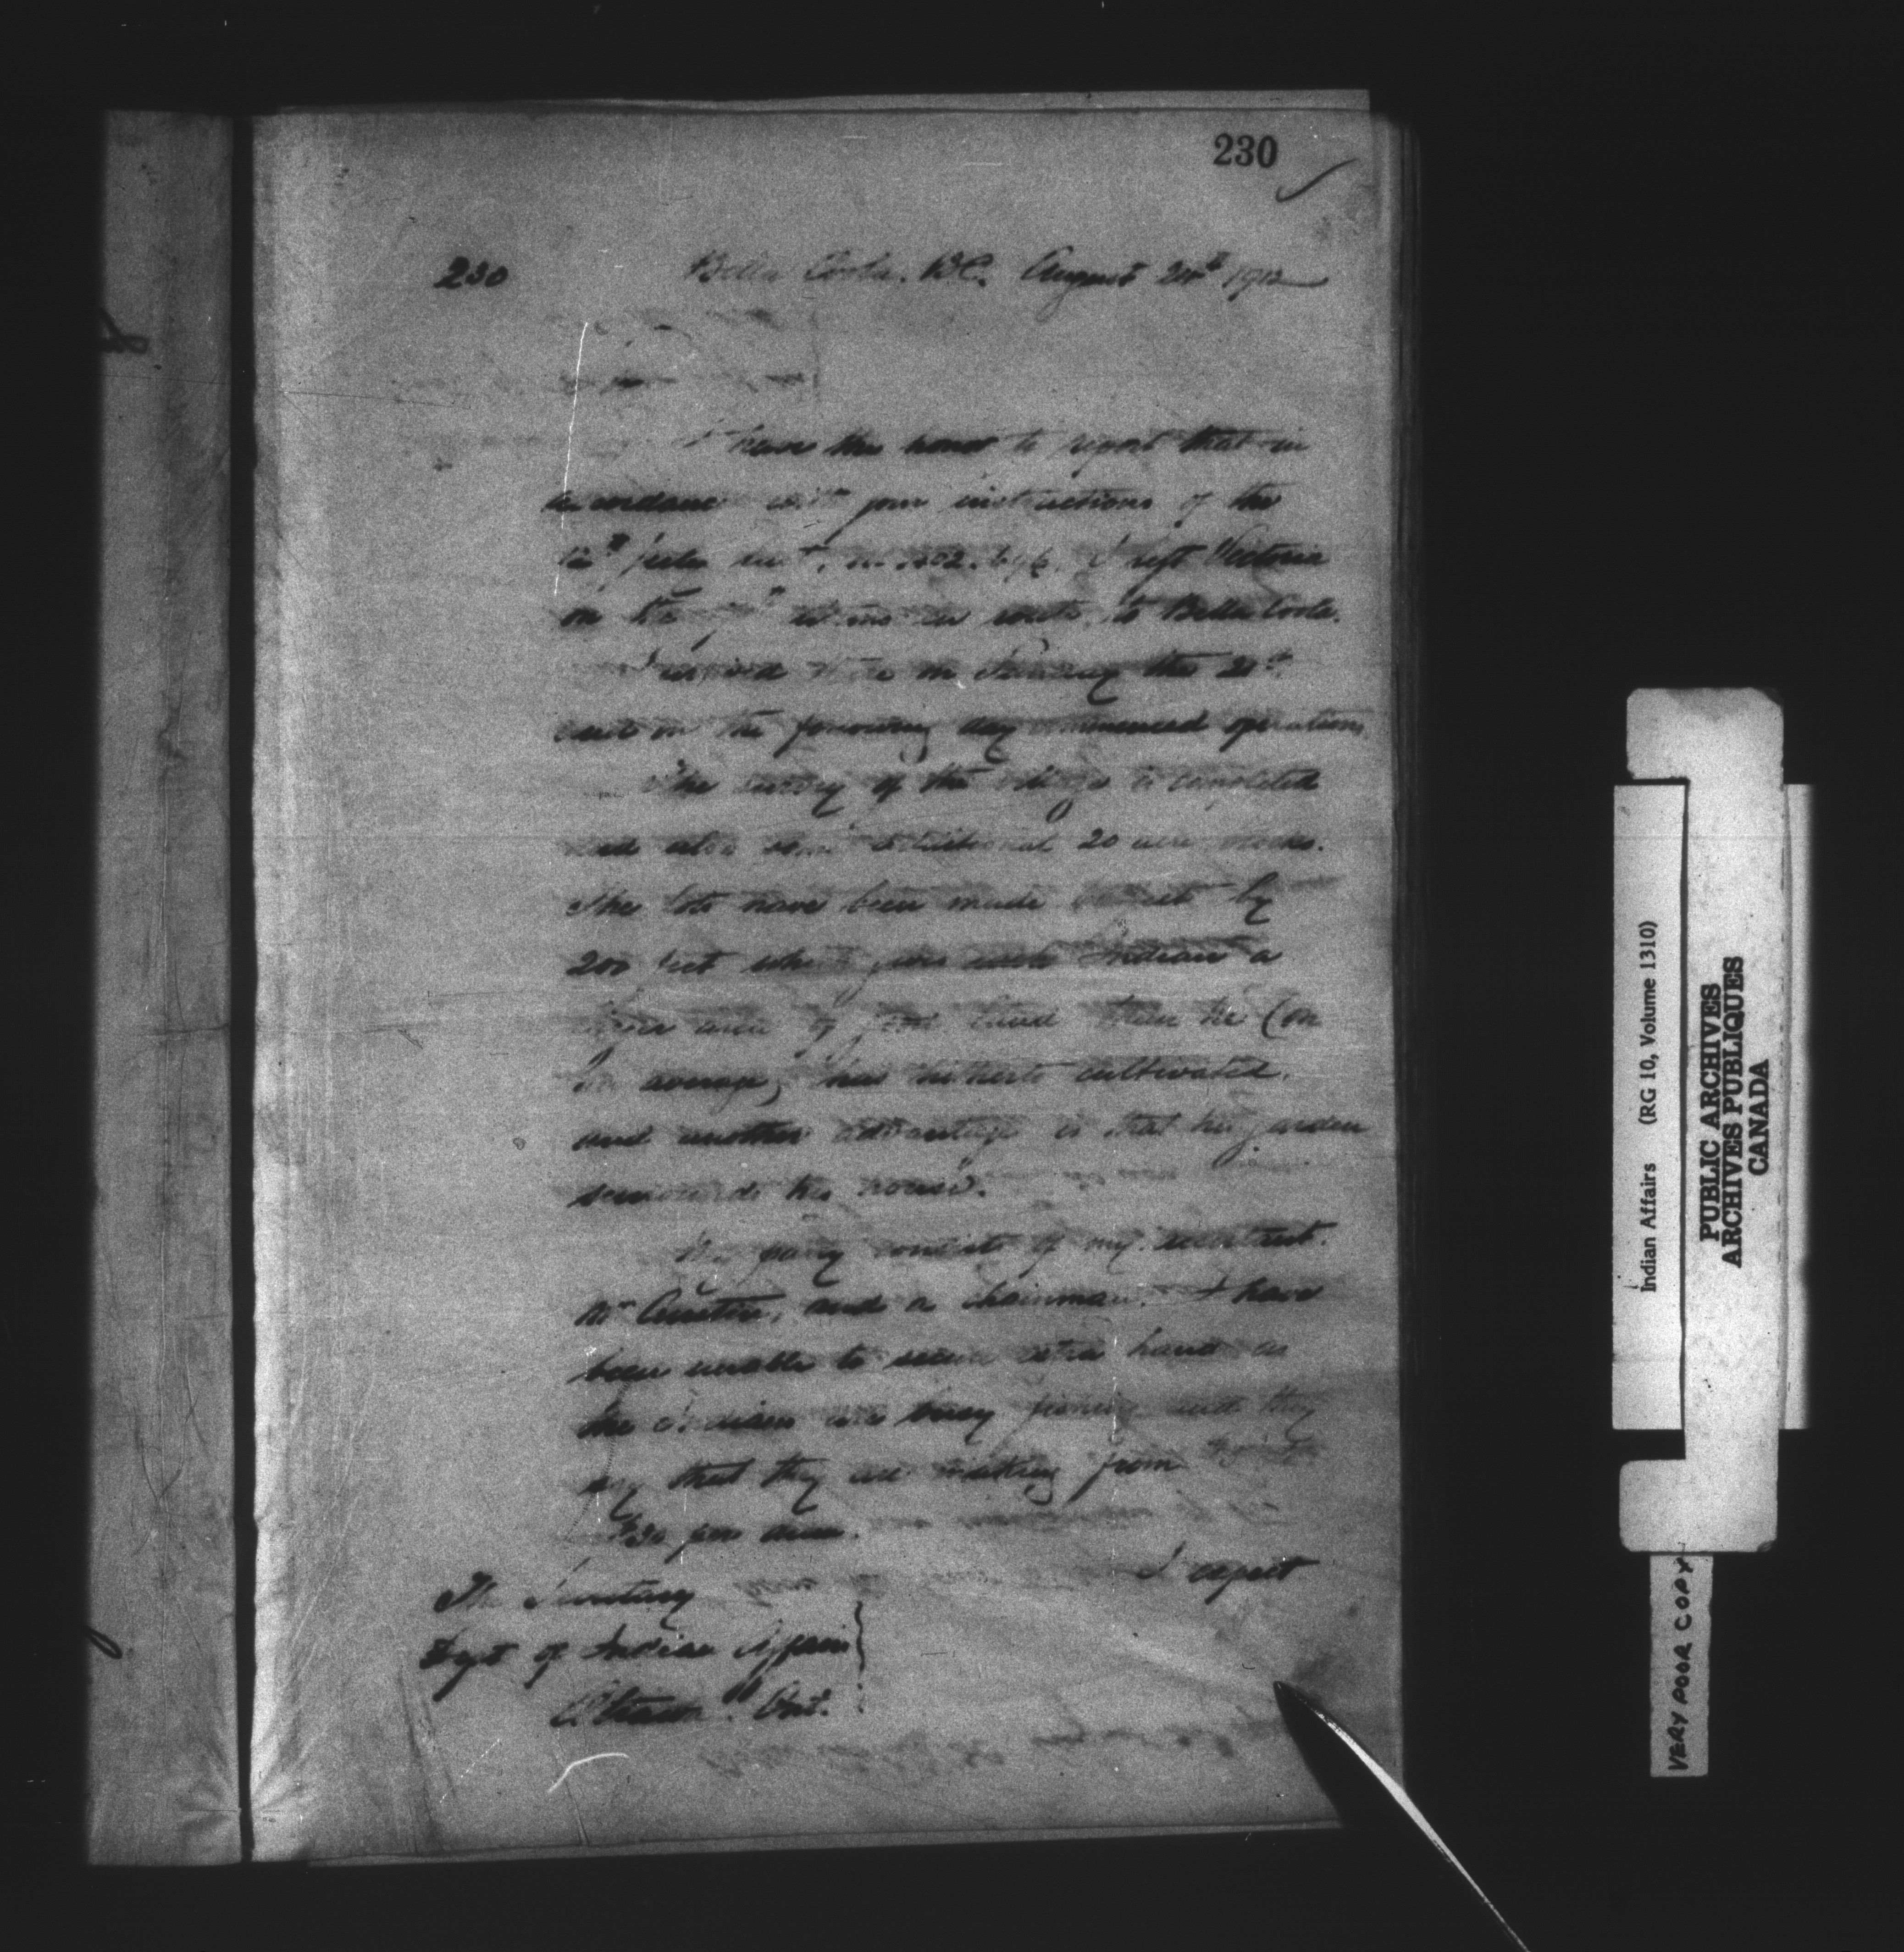 230
230 Bella Coola. B.C. August 1912
I have the honor to report that in
accordance with your instructions of the
12th I left Victoria
on the en route to Bella Coola.
I arrived here on Sunday the
and on the following day commenced operations
The survey of the village is completed
and also some additional 20 acre
The lots have been made by
200 feet which gives each Indian a
area of good land than he (on
an average) has hitherto cultivated,
and another advantage is that his garden
surrounds his house.
My party consists of my assistant.
Mr Austin, and a chainman. I have
been unable to secure extra hands as
the Indians are busy fishing and they
say that they are making from
$30 per diem.
I expect
The Secretary
Dept of Indian Affairs
Ottawa. Ont.
Indian Affairs (RG 10, Volume 1310)
PUBLIC ARCHIVES
ARCHIVES PUBLIQUES
CANADA
VERY POOR COPY